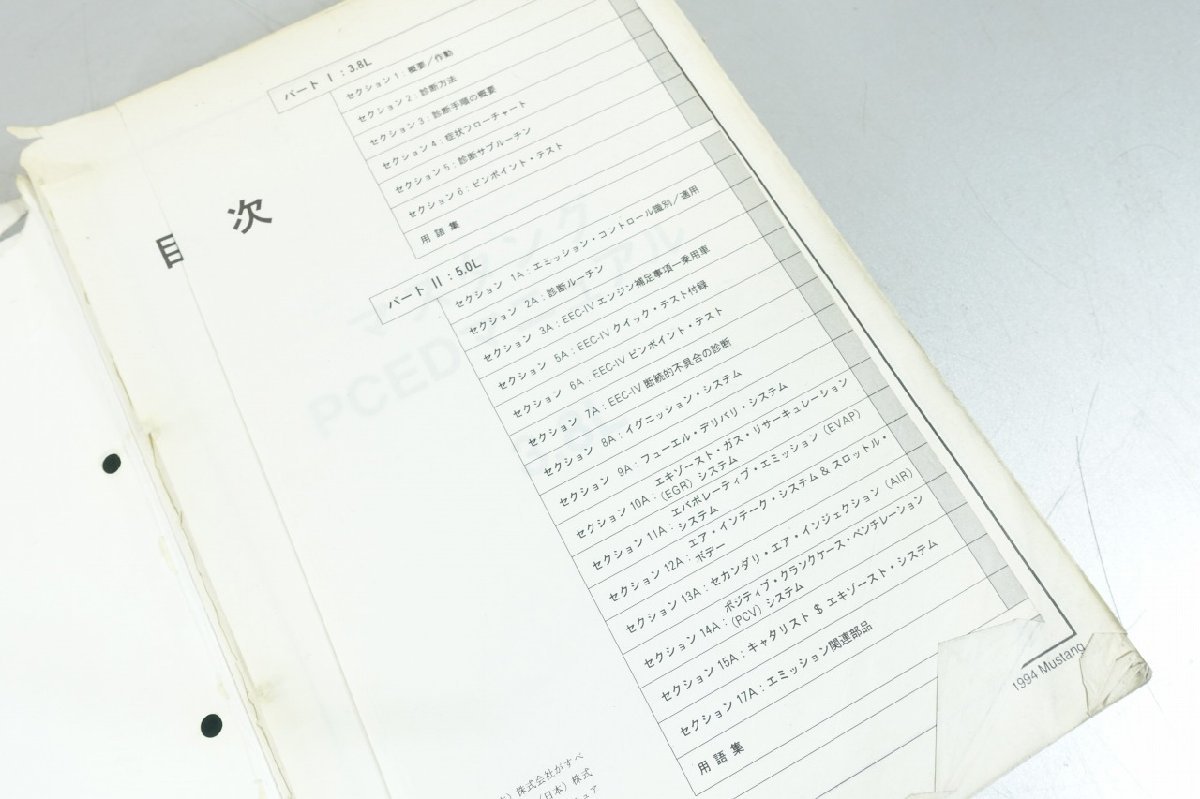 目 次
パート I : 3.8L
セクション 1 : 概要／作動
セクション 2 : 診断方法
セクション 3 : 診断手順の概要
セクション 4 : 症状フローチャート
セクション 5 : 診断サブルーチン
セクション 6 : ピンポイント・テスト
用 語 集
パート II : 5.0L
セクション 1A : エミッション・コントロール識別／適用
セクション 2A : 診断ルーチン
セクション 3A : EEC-IV エンジン補足事項ー乗用車
セクション 5A : EEC-IV クイック・テスト付録
セクション 6A : EEC-IV ピンポイント・テスト
セクション 7A : EEC-IV 断続的不具合の診断
セクション 8A : イグニッション・システム
セクション 9A : フューエル・デリバリ・システム
セクション 10A : エキゾースト・ガス・リサーキュレーション
(EGR) システム
セクション 11A : エバポレーティブ・エミッション (EVAP)
システム
セクション 12A : エア・インテーク・システム & スロットル・
ボデー
セクション 13A : セカンダリ・エア・インジェクション (AIR)
セクション 14A : ポジティブ・クランクケース・ベンチレーション
(PCV) システム
セクション 15A : キャタリスト $ エキゾースト・システム
セクション 17A : エミッション関連部品
用 語 集
1994 Mustang
株式会社がすべ
(日本) 株式
ュア
PCED